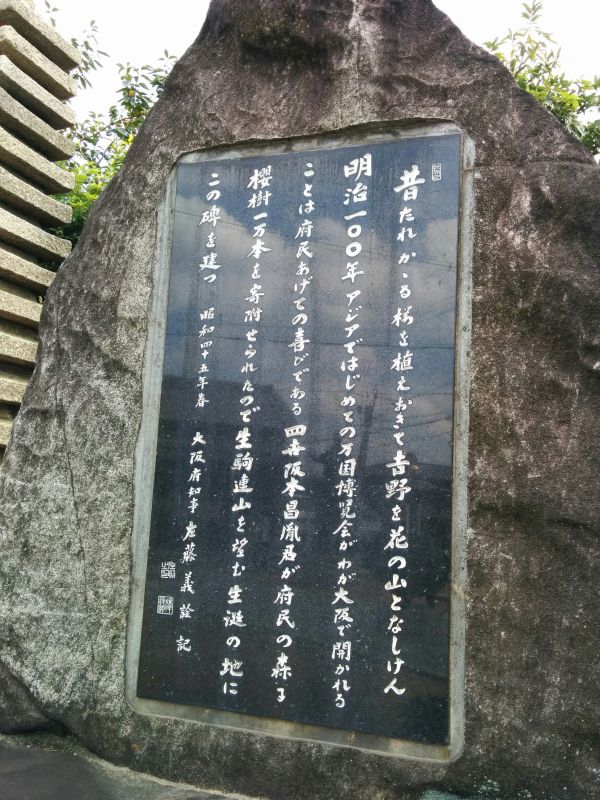 昔たれかゝる桜を植えおきて吉野を花の山となしけん
明治一〇〇年アジアではじめての万国博覧会がわが大阪で開かれる
ことは府民あげての喜びである 四世阪本昌胤君が府民の森に
櫻樹一万本を寄附せられたので生駒連山を望む生誕の地に
この碑を建つ 昭和四十五年春 大阪府知事 左藤義詮 記